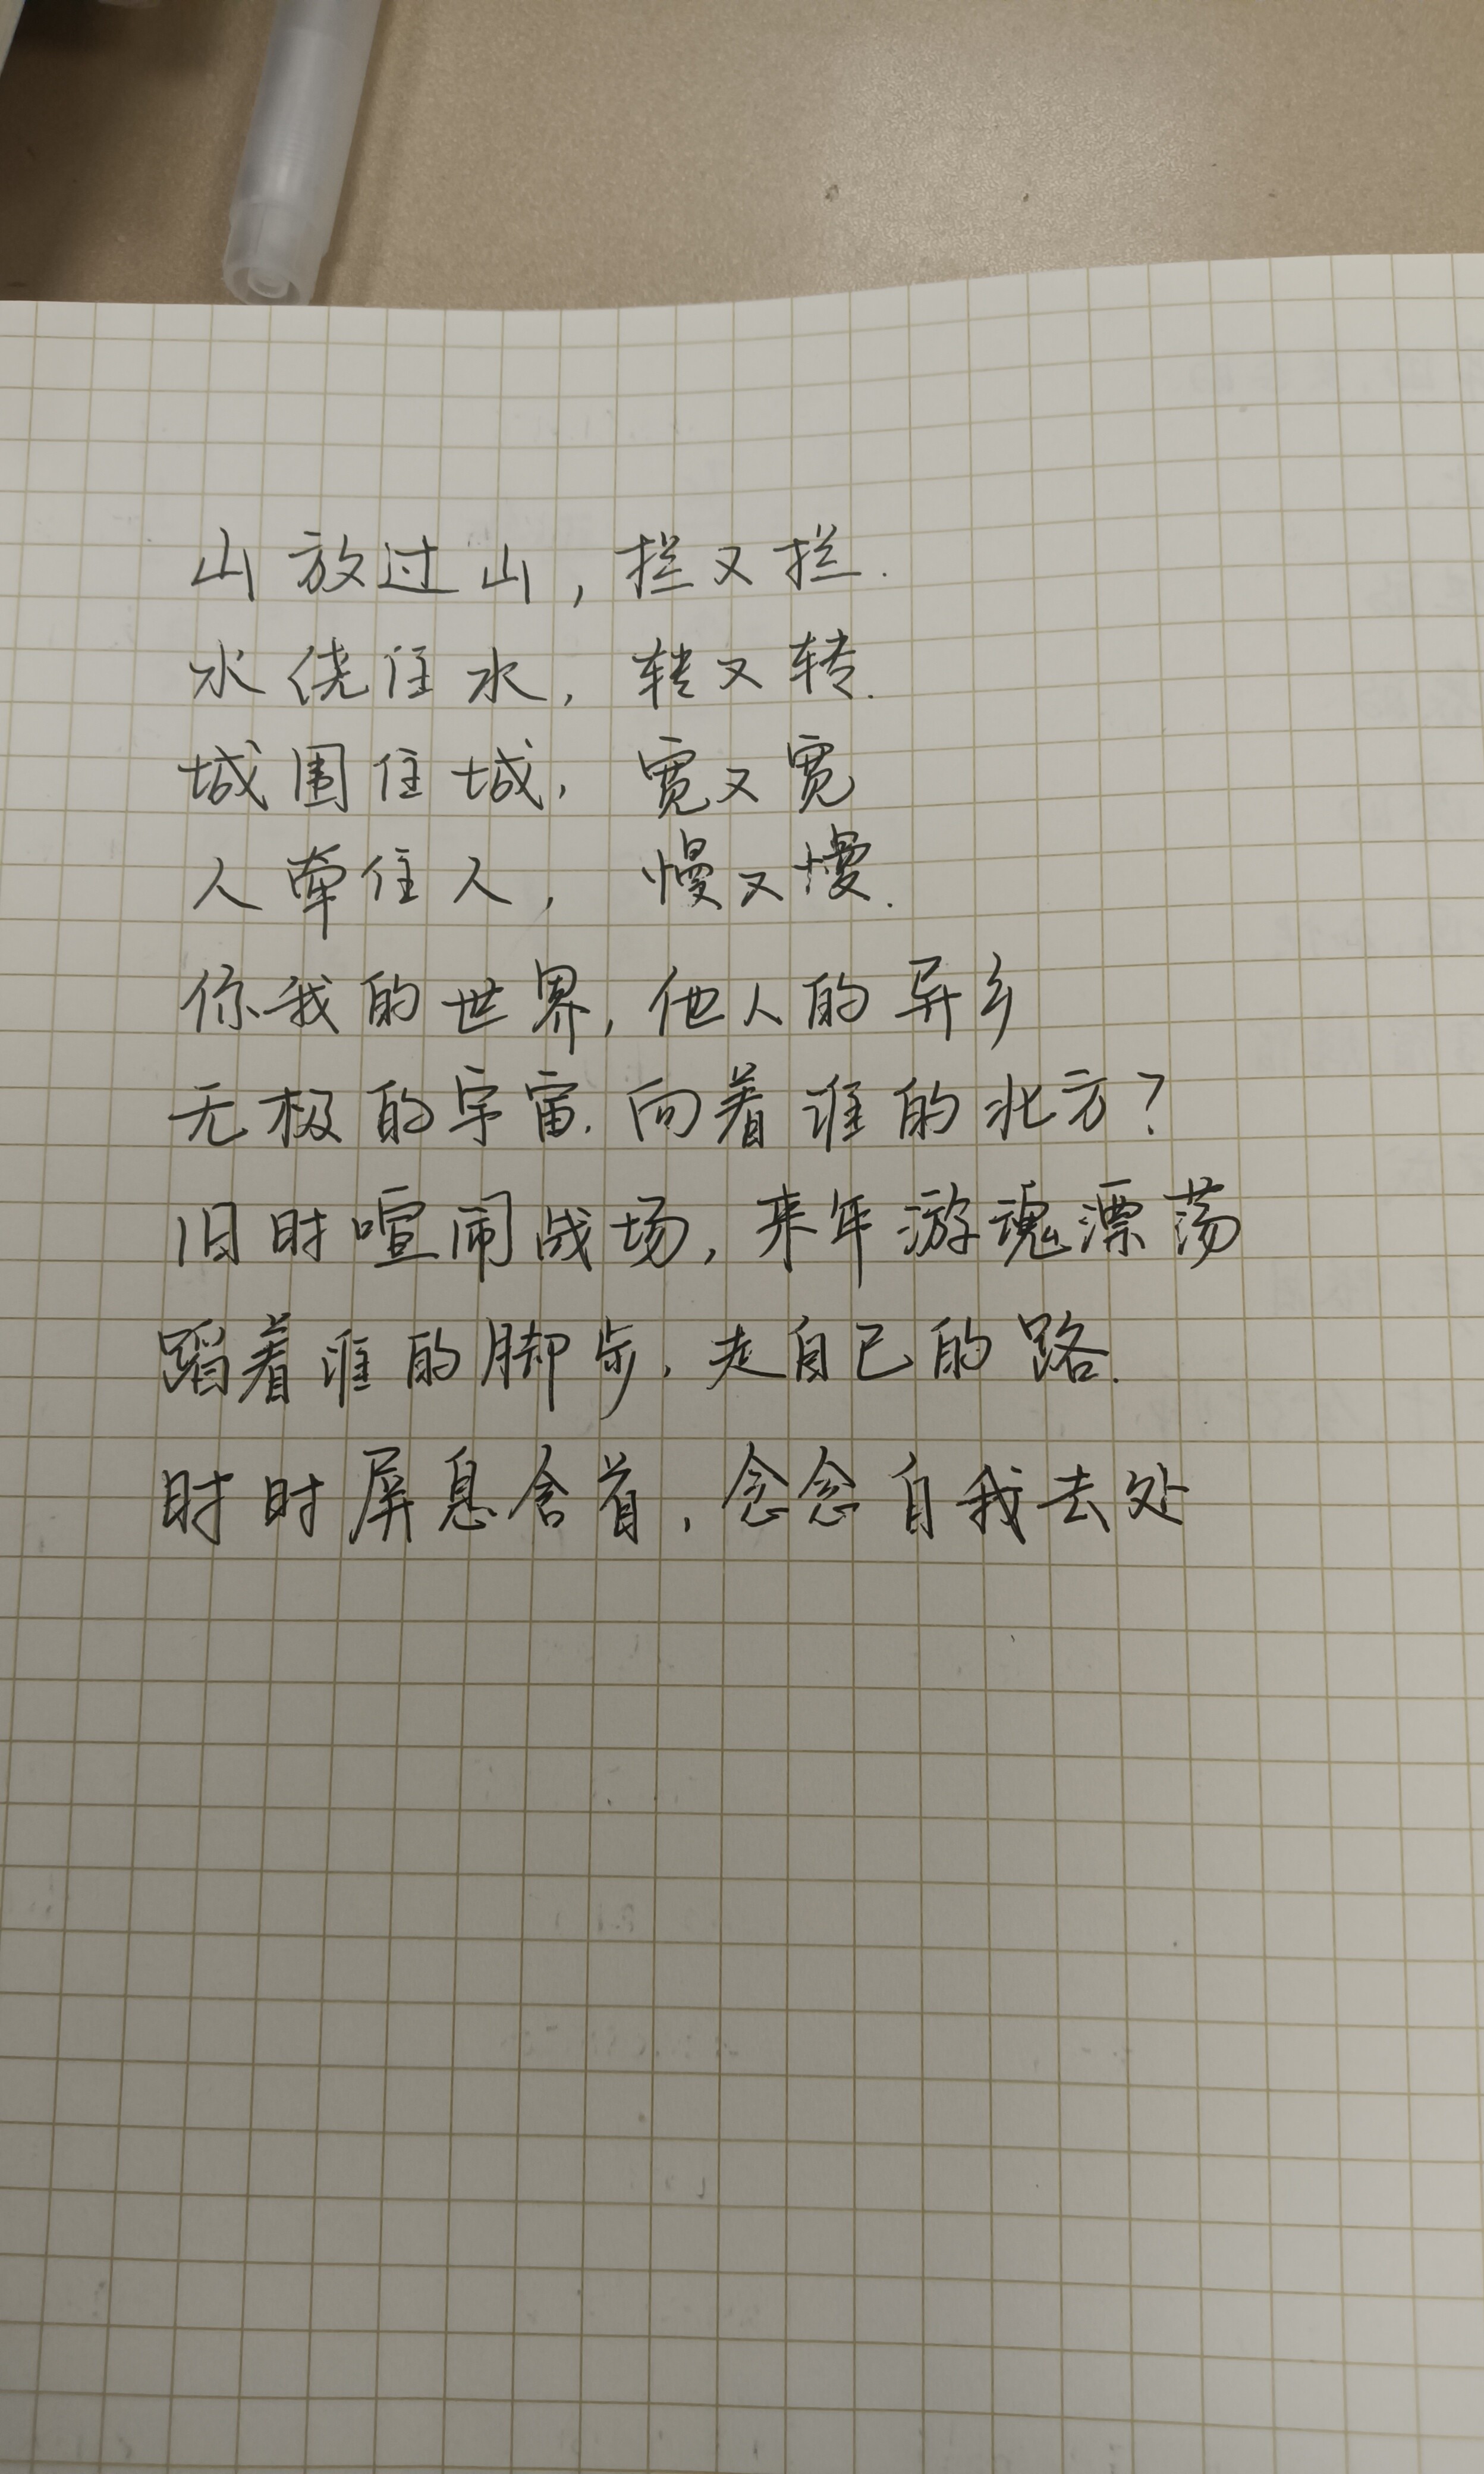 山放过山，拦又拦.
水绕住水，转又转.
城围住城，宽又宽
人牵住人，慢又慢.
你我的世界，他人的异乡
无极的宇宙.向着谁的北方？
旧时喧闹战场，来年游魂漂荡
蹈着谁的脚步，走自己的路.
时时屏息含首，念念自我去处